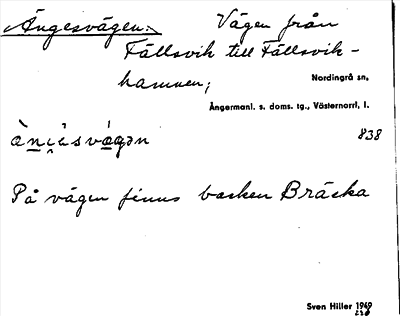 Ängesvägen: Vägen från
Fällsvik till Fällsvik-
hamnen;
Nordingrå sn,
Ångermanl. s. doms. tg., Västernorrl. l.
838
På vägen finns backen Bräcka
Sven Hiller 1949